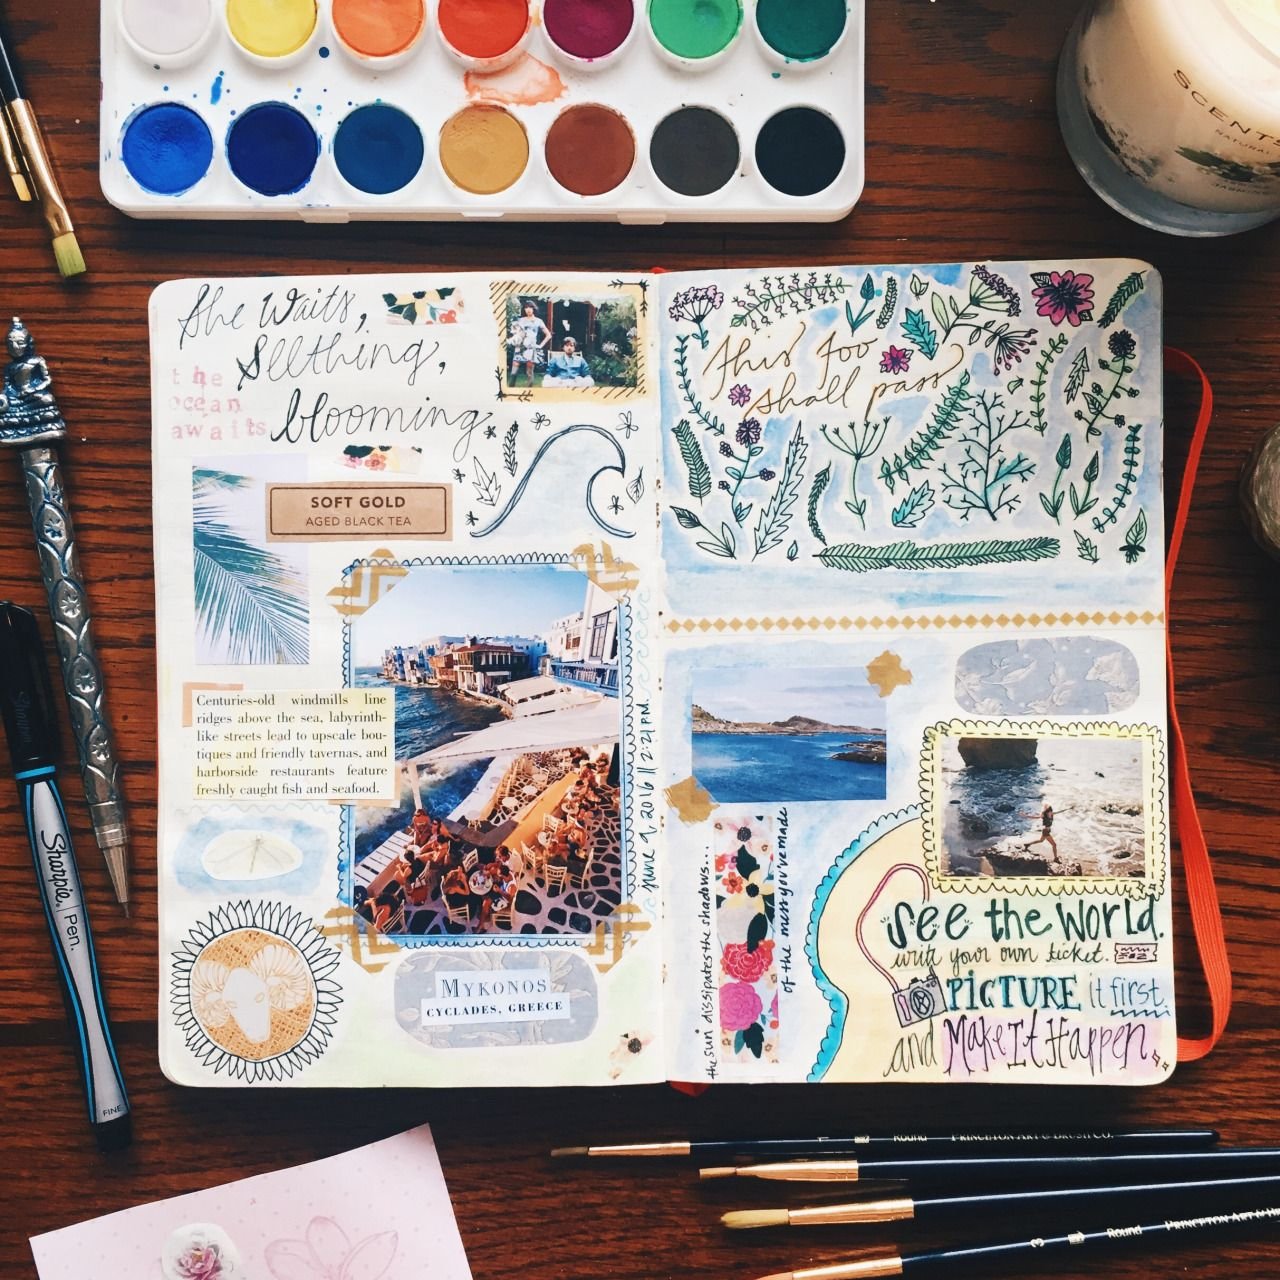 SCENTS
NATURAL
She waits,
Seething,
blooming
the
ocean
awaits
SOFT GOLD
AGED BLACK TEA
Centuries-old windmills line
ridges above the sea, labyrinth-
like streets lead to upscale bou-
tiques and friendly tavernas, and
harborside restaurants feature
freshly caught fish and seafood.
June 9, 2016 || 2:21 PM.
MYKONOS
CYCLADES, GREECE
this too
shall pass
the sun dissipates the shadows...
of the mess you've made
See the World.
write your own ticket.
PiCTURE it first,
and Make It Happen
Sharpie. Pen.
FINE
1 Round PRINCETON ART & BRUSH CO.
3 Round PRINCETON ART &